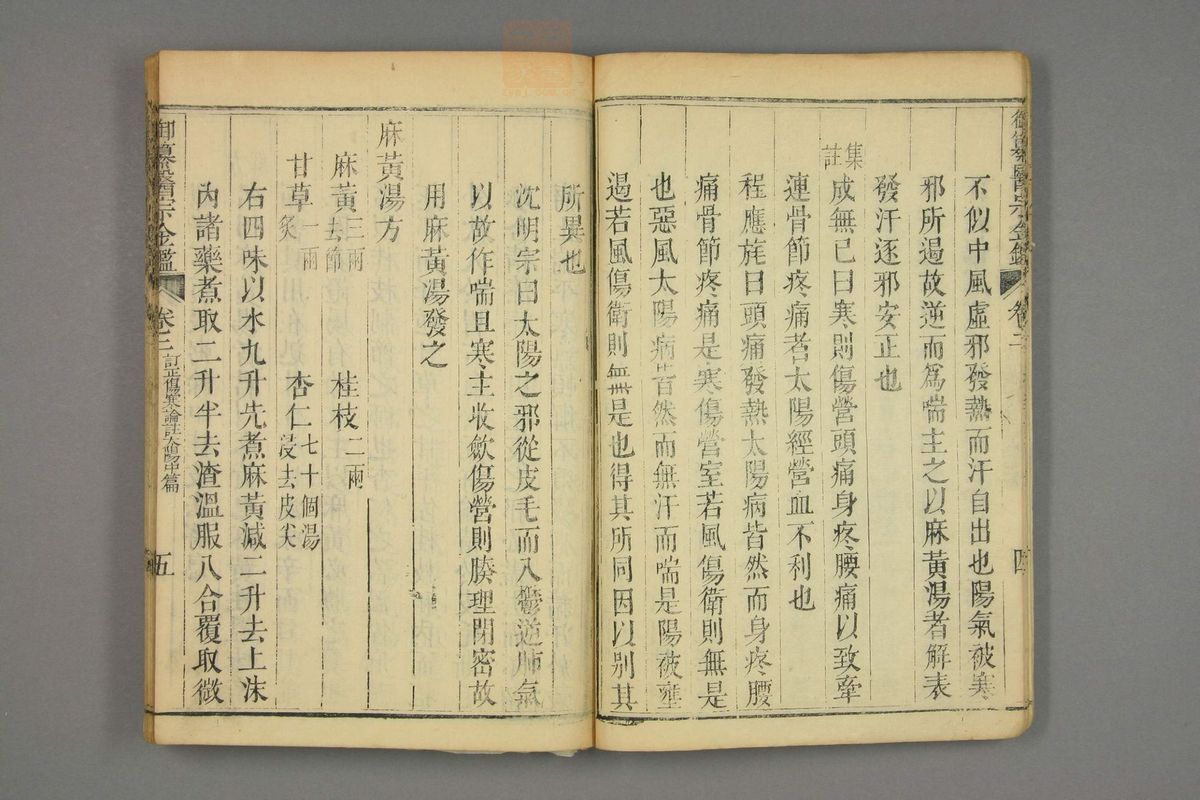 不似中風虛邪發熱而汗自出也陽氣被寒
邪所遏故逆而為喘主之以麻黃湯者解表
發汗逐邪安正也
集註
成無已曰寒則傷營頭痛身疼腰痛以致牽
連骨節疼痛者太陽經營血不利也
程應旄曰頭痛發熱太陽病皆然而身疼腰
痛骨節疼痛是寒傷營室若風傷衛則無是
也惡風太陽病皆然而無汗而喘是陽被壅
遏若風傷衛則無是也得其所同因以別其
御纂醫宗金鑑
四
所異也
沈明宗曰太陽之邪從皮毛而入鬱逆肺氣
以故作喘且寒主收歛傷營則腠理閉密故
用麻黃湯發之
麻黃湯方
麻黃三兩去節
桂枝二兩
甘草一兩炙
杏仁七十個湯浸去皮尖
右四味以水九升先煮麻黃減二升去上沫
內諸藥煮取二升半去渣溫服八合覆取微
御纂醫宗金鑑
訂正傷寒論註太陽中篇
五